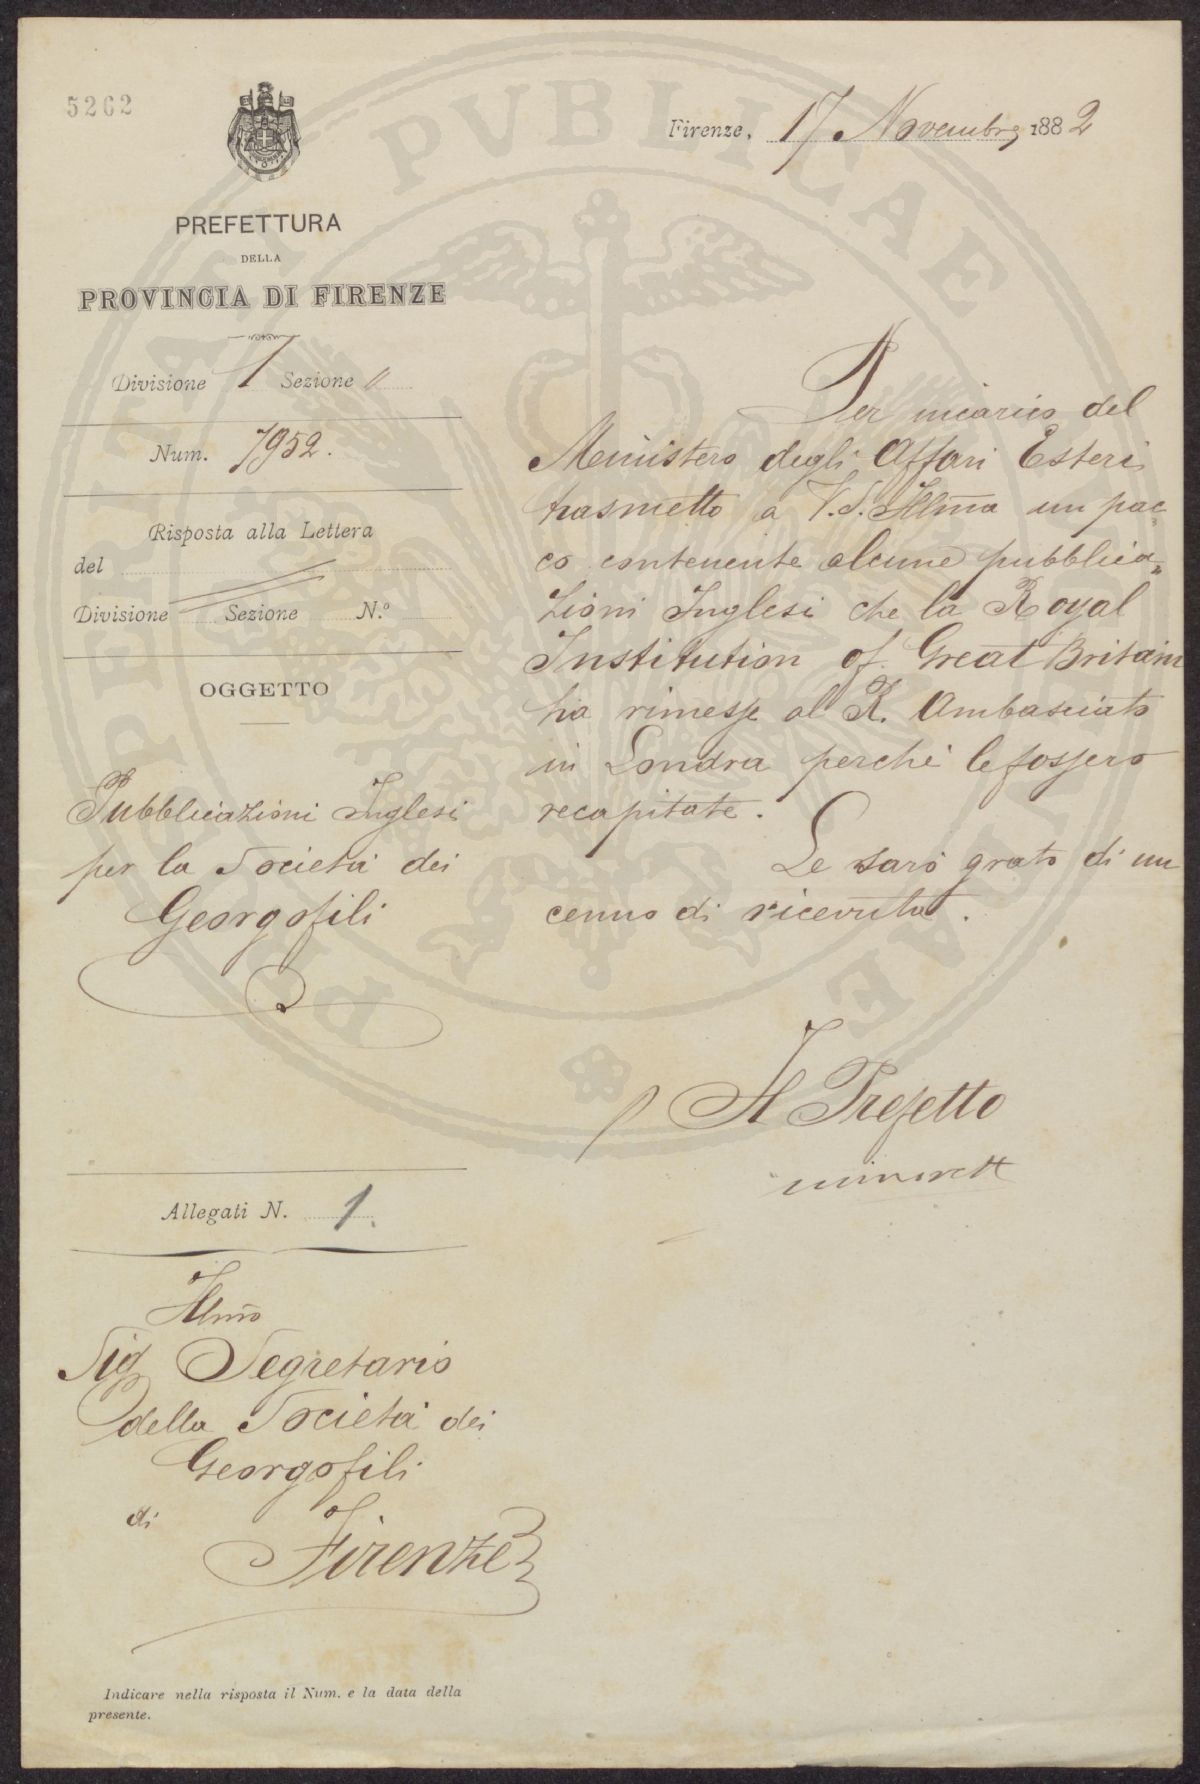 5262
Firenze, 17 Novembre 1882
PREFETTURA
DELLA
PROVINCIA DI FIRENZE
Divisione 1 Sezione "
Num. 7952.
Risposta alla Lettera
del
Divisione Sezione N.º
OGGETTO
Pubblicazioni Inglesi
per la Società dei
Georgofili
Per incarico del
Ministero degli Affari Esteri
trasmetto a V.S. Illm̃a un pac„
co contenente alcune pubblica„
zioni Inglesi che la Royal
Institution of Great Britain
ha rimesse al R. Ambasciato
in Londra perchè le fossero
recapitate.
Le sarò grato di un
cenno di ricevuta.
Il Prefetto
Allegati N. 1.
Illm̃o
Sig Segretario
della Società dei
Georgofili
di
Firenze
Indicare nella risposta il Num. e la data della
presente.
PENITATI PVBLICAE